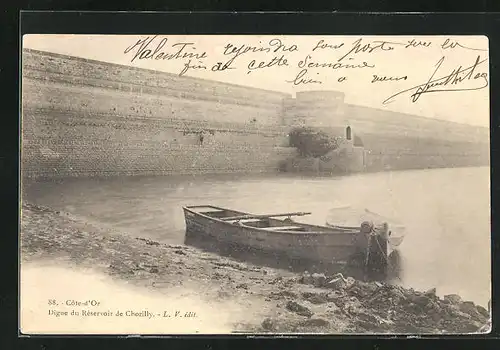 Valentine rejoindra son poste sur la
fin de cette semaine
bien à vous
88. - Côte-d'Or
Digue du Réservoir de Chazilly. - L. V. édit.